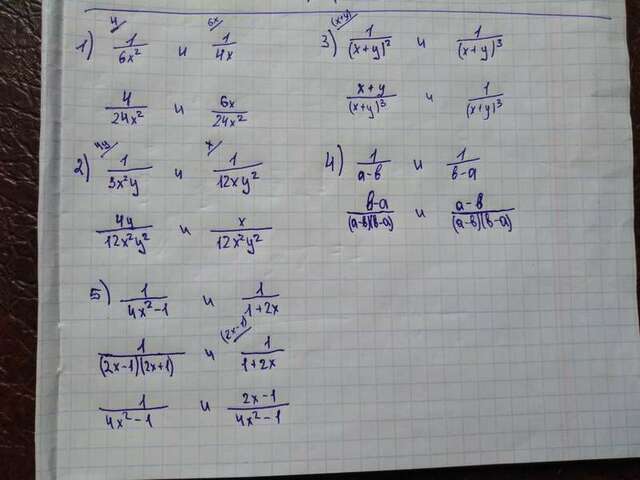 4 6x
1) 1/6x² и 1/4x
4/24x² и 6x/24x²
4y x
2) 1/3x²y и 1/12xy²
4y/12x²y² и x/12x²y²
(x+y)
3) 1/(x+y)² и 1/(x+y)³
x+y/(x+y)³ и 1/(x+y)³
4) 1/a-в и 1/в-a
в-a/(a-в)(в-a) и a-в/(a-в)(в-a)
5) 1/4x²-1 и 1/1+2x
(2x-1)
1/(2x-1)(2x+1) и 1/1+2x
1/4x²-1 и 2x-1/4x²-1